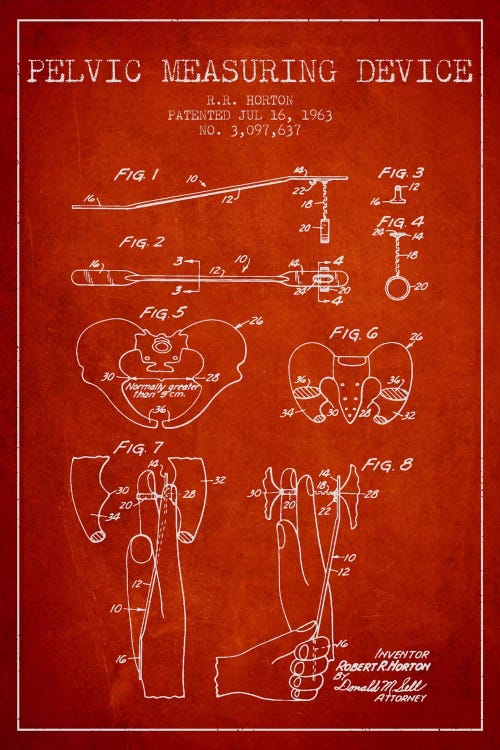 PELVIC MEASURING DEVICE
R.R. HORTON
PATENTED JUL 16, 1963
NO. 3,097,637
FIG. 1
16
10
12
14
22
18
20
FIG. 3
12
16
FIG. 4
24
14
18
20
FIG. 2
16
3
3
12
10
14
24
4
4
20
FIG. 5
26
30
28
Normally greater
than 9 cm.
36
FIG. 6
26
36
36
34
30
28
32
FIG. 7
14
30
20
28
32
34
12
10
16
FIG. 8
14
30
18
20
22
28
10
12
16
INVENTOR
ROBERT R. HORTON
BY
Donald M. Sell
ATTORNEY